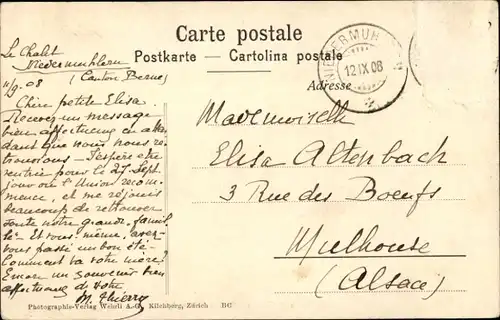 Carte postale
Postkarte — Cartolina postale
Adresse
NIEDERMUH
12.IX.08
Le Chalet
Niedermuhlern
(Canton Berne)
11/9. 08
Chère petite Elisa
Recevez un message
bien affectueux en atten-
dant que nous nous re-
trouvions — J'espère être
rentrée pour le 27 Sept.
jour où l'Union recom-
mence, et me réjouis
beaucoup de retrouver
toute notre grande famil-
le. Et vous-même, avez-
vous passé un bon été
Comment va votre mère?
un souvenir bien
affectueux de votre
M. Thierry
Mademoiselle
Elisa Altenbach
3 Rue des Boeufs
Mulhouse
(Alsace)
Photographie-Verlag Wehrli A.-G. Kilchberg, Zürich BC